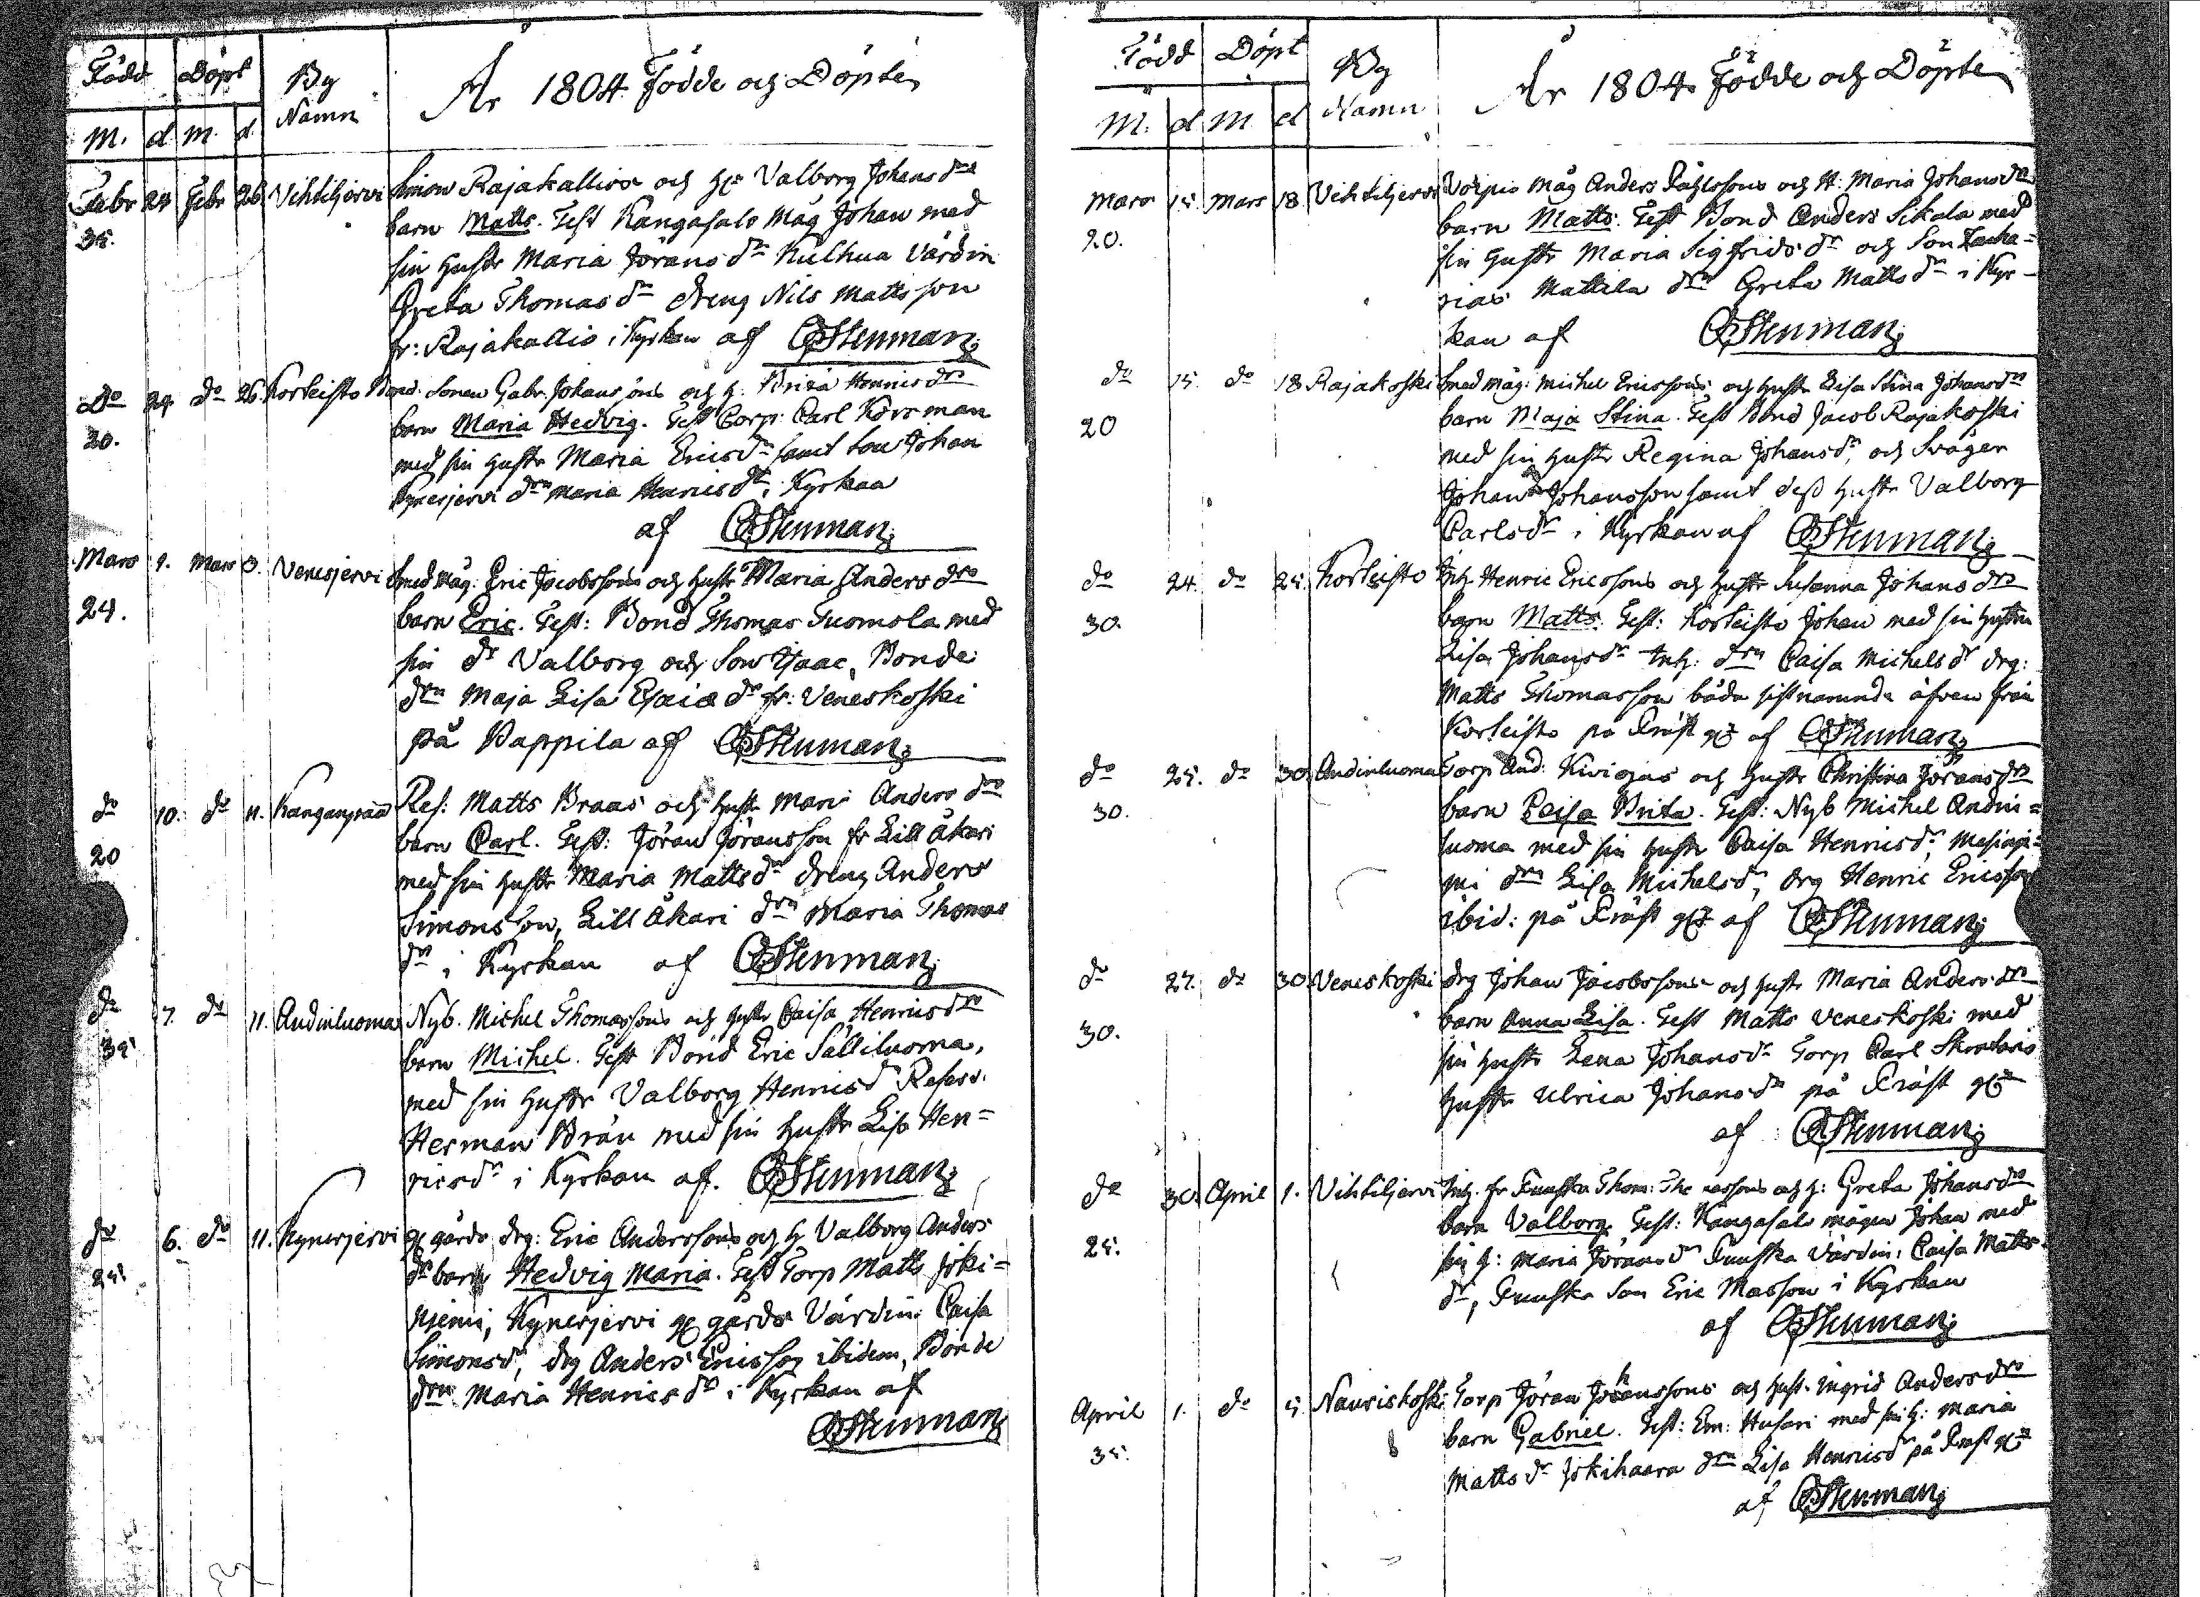 Född Döpt By Namn År 1804 Födde och Döpte
M. d M. d.
Febr 24 Febr 26 Vihtiljervi Simon Rajakallios och H: Valborg Johansdrs
35. barn Matts. Test Kangasalo Måg Johan med
sin hustr Maria Jöransdr Kulhua Värdin
Greta Thomasdr dreng Nils Mattsson
fr: Rajakallio i Kyrkan af Stenman
Do 24 do 26. Korteisto Bond. Sonen Gabr. Johanssons och h: Brita Henricsdrs
30. barn Maria Hedvig. Test Corp: Carl Korsman
med sin hustr Maria Ericsdr samt Son Johan
Kynesjervi drn Maria Henricsdr i Kyrkan
af Stenman
Mars 9. Mars Venesjervi Smed Måg. Eric Jacobssons och hustr Maria Andersdrs
24. barn Eric. Test: Bond Thomas Tuomola med
sin dr Valborg och Son Isaac, Bonde
drn Maja Lisa Esaiædr fr: Veneskoski
på Pappila af Stenman
do 10. do 11. Kanganpää Res: Matts Braas och hustr Mari Andersdrs
20 barn Carl. Test: Jöran Jöransson fr Lill Åkari
med sin hustr Maria Mattsdr dreng Anders
Simonsson, Lill Åkari drn Maria Thomas
dr i Kyrkan af Stenman
do 7. do 11. Andinluoma Nyb. Michel Thomassons och hustr Caisa Henricsdrs
35 barn Michel. Test Bond Eric Sälliluoma,
med sin hustr Valborg Henricsdr Reserv.
Herman Brän med sin hustr Lisa Hen=
ricsdr i Kyrkan af. Stenman
do 6. do 11. Kynesjervi gårds drg: Eric Anderssons och h Valborg Anders
25. dr barn Hedvig Maria. Test Torp Matts Joki=
niemi, Kynesjervi gårds Värdin: Caisa
Simonsdr, drg Anders Ericsson ibidem, Bonde
drn Maria Henricsdr i Kyrkan af
Stenman
Född Döpt By Namn År 1804 Födde och Döpte
M: d M d
Mars 15. Mars 18 Vihtiljervi Vörpio Måg Anders Påhlssons och H: Maria Johansdrs
20. barn Matts. Test Bond Anders Sikala med
sin hustr Maria Sigfridsdr och Son Zacha=
rias Mattila drn Greta Mattsdr i Kyr-
kan af Stenman
do 15. do 18 Rajakoski Smed Måg: Michel Ericssons och hustr Lisa Stina Johansdrs
20 barn Maja Stina. Test Bond Jacob Rajakoski
med sin hustr Regina Johansdr, och Svåger
Johan Johansson samt dess hustr Valborg
Carlsdr i Kyrkan af Stenman
do 24. do 25. Korteisto Inh. Henric Ericssons och hustr Susanna Johansdrs
30. barn Matts. Test: Korteisto Johan med sin hustru
Lisa Johansdr Inh: drn Caisa Michelsdr drg:
Matts Thomasson båda sistnamnda äfven från
Korteisto på Präst gd af Stenman
do 25. do 30. Andinluoma Torp And: Kiviojas och hustr Christina Jöransdrs
30. barn Caisa Brita. Test: Nyb Michel Andin=
luoma med sin hustr Caisa Henricsdr, Mesiäjä=
mi drn Lisa Michelsdr, drg Henric Ericsson
ibid: på Präst gd af Stenman
do 27. do 30. Veneskoski drg Johan Jacobssons och hustr Maria Andersdrs
30. barn Anna Lisa. Test Matts Veneskoski med
sin hustr Lena Johansdr Torp Carl
hustr Ulrica Johansdr på Präst gd
af Stenman
do 30. April 1. Vihtiljervi Inh. fr Punska Thom: Thomassons och h: Greta Johansdrs
25. barn Valborg. Test: Kangasalo mågen Johan med
sin h: Maria Jöransdr Punska Värdin: Caisa Matts
dr, Punska Son Eric Masson i Kyrkan
af Stenman
April 1. do 5 Nauriskoski Torp Jöran Johanssons och hust. Ingrid Andersdrs
35. barn Gabriel. Test: Em: Husari med sin h: Maria
Mattsdr Jokihaara drn Lisa Henricsdr på Präst gd
af Stenman